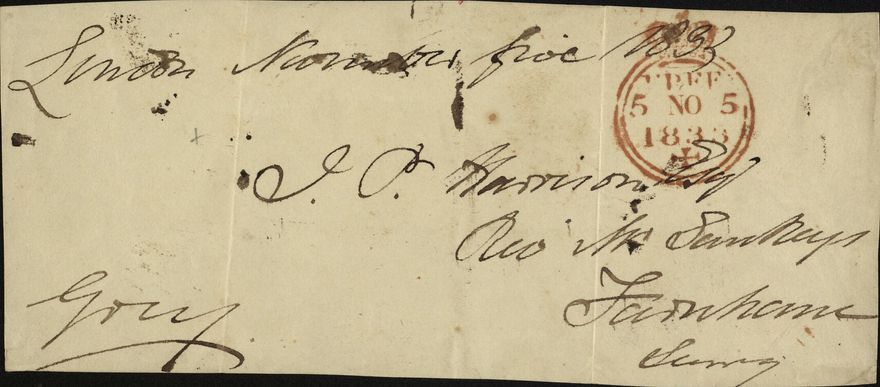 London November five 1833
FREE
5 NO 5
1833
J. P. Harrison Esqr
Rev Mr Sankeys
Farnham
Surry
Grey